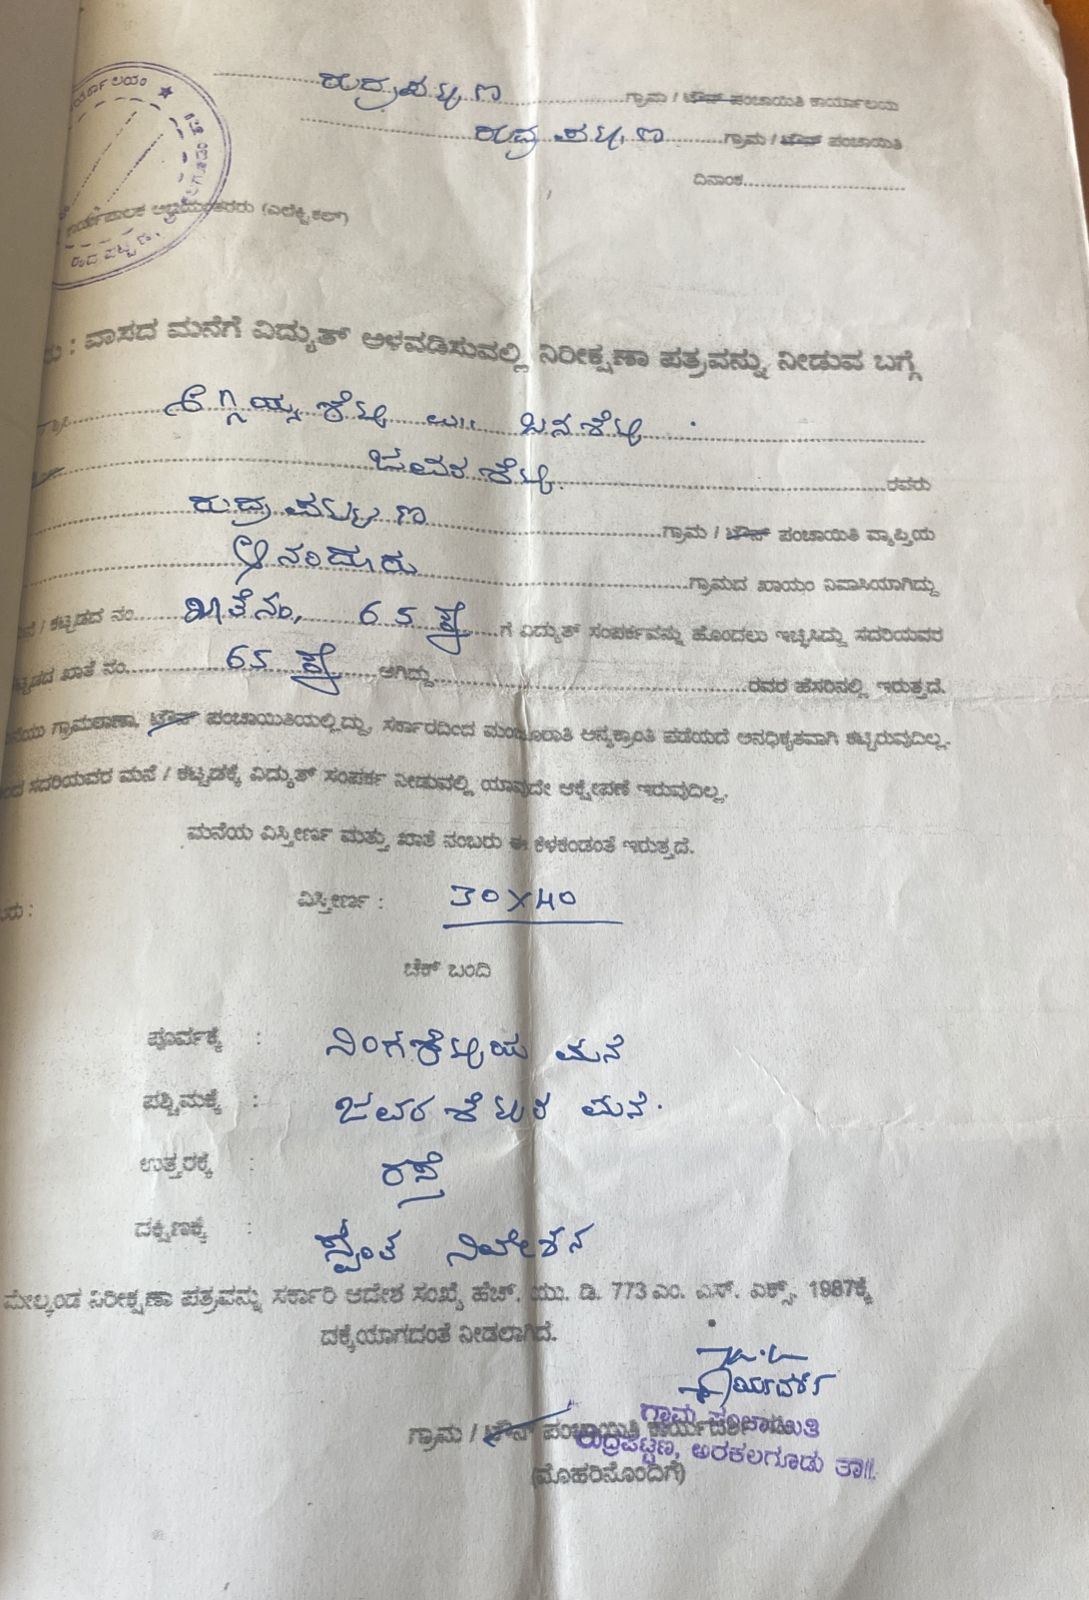 ರುದ್ರಪಟ್ಟಣ ಗ್ರಾಮ / ಟೌನ್ ಪಂಚಾಯಿತಿ ಕಾರ್ಯಾಲಯ
ರುದ್ರಪಟ್ಟಣ ಗ್ರಾಮ / ಟೌನ್ ಪಂಚಾಯಿತಿ
ದಿನಾಂಕ
ಕಾರ್ಯಪಾಲಕ ಅಭಿಯಂತರರು (ಎಲೆಕ್ಟ್ರಿಕಲ್)
ರುದ್ರಪಟ್ಟಣ,
: ವಾಸದ ಮನೆಗೆ ವಿದ್ಯುತ್ ಅಳವಡಿಸುವಲ್ಲಿ ನಿರೀಕ್ಷಣಾ ಪತ್ರವನ್ನು ನೀಡುವ ಬಗ್ಗೆ
ಶೆಟ್ಟಿ ಬಿನ್
ಜವರ ಶೆಟ್ಟಿ ರವರು
ರುದ್ರಪಟ್ಟಣ ಗ್ರಾಮ / ಟೌನ್ ಪಂಚಾಯಿತಿ ವ್ಯಾಪ್ತಿಯ
ಆನಂದೂರು ಗ್ರಾಮದ ಖಾಯಂ ನಿವಾಸಿಯಾಗಿದ್ದು
/ ಕಟ್ಟಡದ ನಂ. ಖಾತೆ ನಂ, 65 ಕ್ಕೆ ಗೆ ವಿದ್ಯುತ್ ಸಂಪರ್ಕವನ್ನು ಹೊಂದಲು ಇಚ್ಛಿಸಿದ್ದು ಸದರಿಯವರ
ಖಾತೆ ನಂ. 65 ಕ್ಕೆ ಆಗಿದ್ದು ರವರ ಹೆಸರಿನಲ್ಲಿ ಇರುತ್ತದೆ.
ಗ್ರಾಮಠಾಣಾ, ಟೌನ್ ಪಂಚಾಯಿತಿಯಲ್ಲಿದ್ದು, ಸರ್ಕಾರದಿಂದ ಮಂಜೂರಾತಿ ಅನ್ಯಕ್ರಾಂತಿ ಪಡೆಯದೆ ಅನಧಿಕೃತವಾಗಿ ಕಟ್ಟಿರುವುದಿಲ್ಲ.
ಸದರಿಯವರ ಮನೆ / ಕಟ್ಟಡಕ್ಕೆ ವಿದ್ಯುತ್ ಸಂಪರ್ಕ ನೀಡುವಲ್ಲಿ ಯಾವುದೇ ಆಕ್ಷೇಪಣೆ ಇರುವುದಿಲ್ಲ.
ಮನೆಯ ವಿಸ್ತೀರ್ಣ ಮತ್ತು ಖಾತೆ ನಂಬರು ಈ ಕೆಳಕಂಡಂತೆ ಇರುತ್ತದೆ.
ವಿಸ್ತೀರ್ಣ : 30×40
ಚೆಕ್ ಬಂದಿ
ಪೂರ್ವಕ್ಕೆ : ನಿಂಗಶೆಟ್ಟಿಯ ಮನೆ
ಪಶ್ಚಿಮಕ್ಕೆ : ಜವರ ಶೆಟ್ಟಿರ ಮನೆ.
ಉತ್ತರಕ್ಕೆ : ರಸ್ತೆ
ದಕ್ಷಿಣಕ್ಕೆ : ಸ್ವಂತ ನಿವೇಶನ
ಮೇಲ್ಕಂಡ ನಿರೀಕ್ಷಣಾ ಪತ್ರವನ್ನು ಸರ್ಕಾರಿ ಆದೇಶ ಸಂಖ್ಯೆ ಹೆಚ್. ಯು. ಡಿ. 773 ಎಂ. ಎಸ್. ಎಕ್ಸ್. 1987ಕ್ಕೆ
ದಕ್ಕೆಯಾಗದಂತೆ ನೀಡಲಾಗಿದೆ.
ಗ್ರಾಮ / ಟೌನ್ ಪಂಚಾಯಿತಿ ಕಾರ್ಯದರ್ಶಿ
ಗ್ರಾಮ ಪಂಚಾಯಿತಿ
ರುದ್ರಪಟ್ಟಣ, ಅರಕಲಗೂಡು ತಾ॥
(ಮೊಹರಿನೊಂದಿಗೆ)